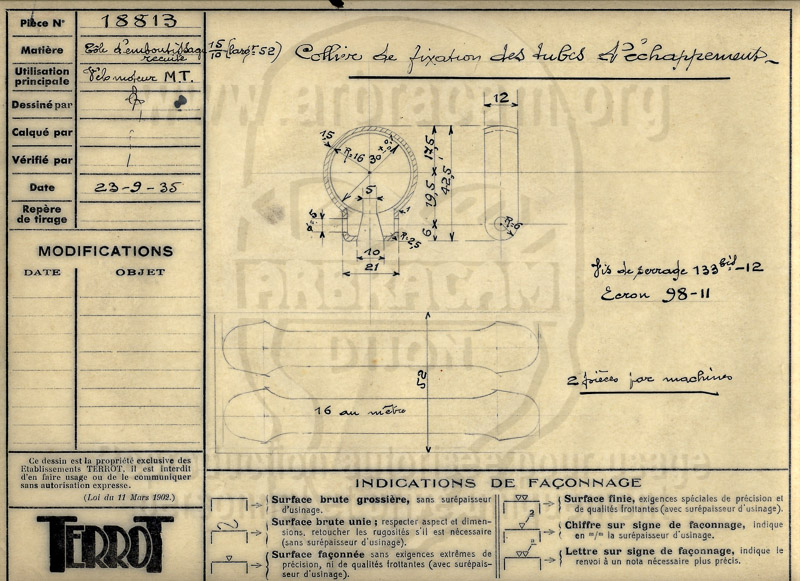 Pièce N° 18813
Matière Tôle d'emboutissage 15/10 (larg^r 52)
recuite
Utilisation
principale Vélomoteur M.T.
Dessiné par
Calqué par
Vérifié par
Date 23-9-35
Repère
de tirage
MODIFICATIONS
DATE OBJET
Collier de fixation des tubes d'échappement
12
15
R=16
30
5
17,5
19,5
42,5
6
R=2,5
10
21
R=6
Vis de serrage 133 bis-12
Ecrou 98-11
52
16 au mètre
2 pièces par machines
www.arbracam.org
ARBRACAM
DIJON
Ce dessin est la propriété exclusive des
Etablissements TERROT. Il est interdit
d'en faire usage ou de le communiquer
sans autorisation expresse.
(Loi du 11 Mars 1902.)
TERROT
INDICATIONS DE FAÇONNAGE
Surface brute grossière, sans surépaisseur
d'usinage.
Surface brute unie ; respecter aspect et dimen-
sions, retoucher les rugosités s'il est nécessaire
(sans surépaisseur d'usinage).
Surface façonnée sans exigences extrêmes de
précision, ni de qualités frottantes (avec surépais-
seur d'usinage).
Surface finie, exigences spéciales de précision et
de qualités frottantes (avec surépaisseur d'usinage).
Chiffre sur signe de faconnage, indique
en =/= la surépaisseur d'usinage.
Lettre sur signe de façonnage, indique le
renvoi à un nota nécessaire plus précis.